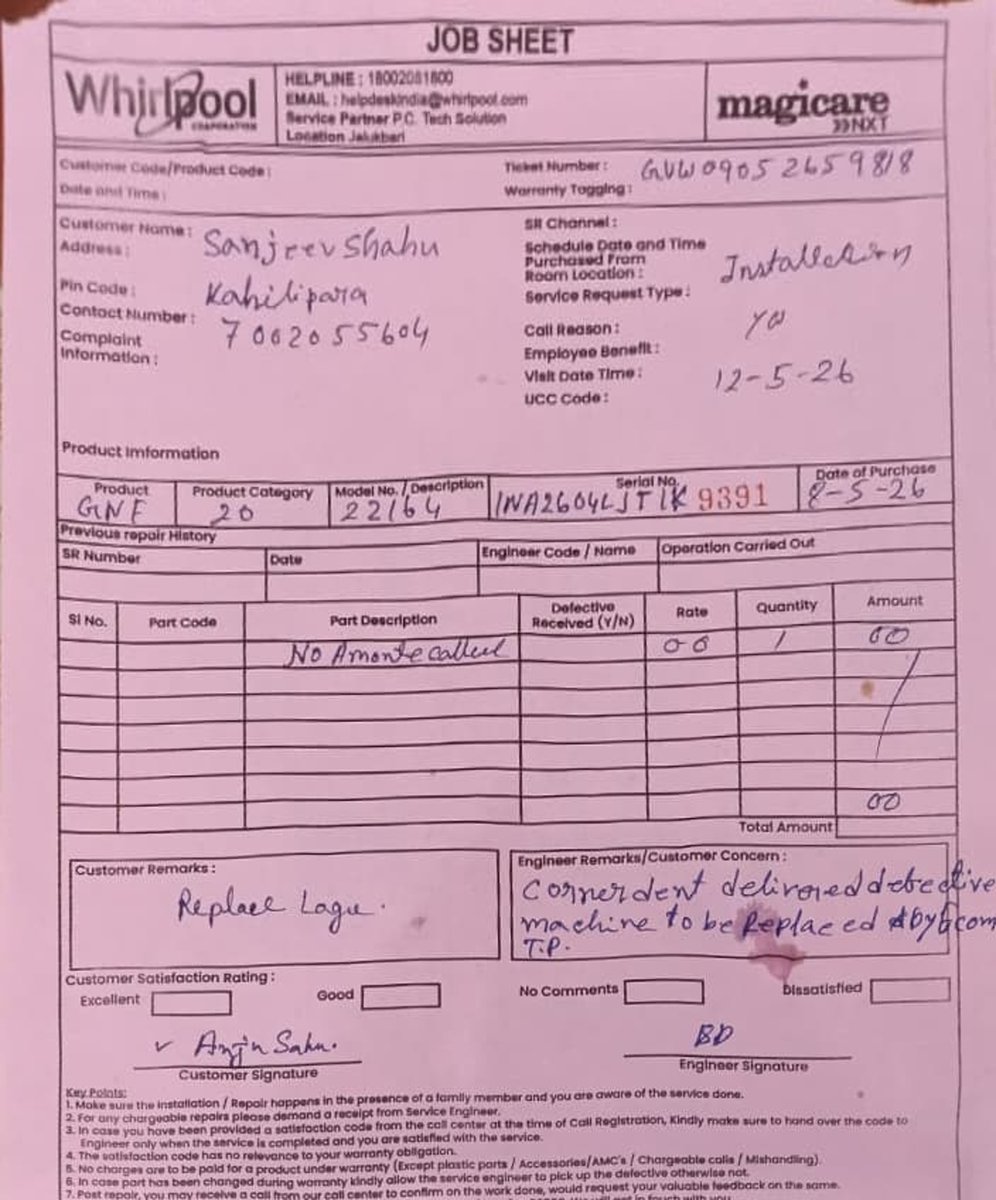 JOB SHEET
Whirlpool
CORPORATION
HELPLINE : 18002081800
EMAIL : helpdeskindia@whirlpool.com
Service Partner P.C. Tech Solution
Location Jalukbari
magicare
NXT
Customer Code/Product Code :
Date and Time :
Ticket Number : GUW0905265 9818
Warranty Tagging :
Customer Name : Sanjeev Shahu
Address :
Pin Code : Kahilipara
Contact Number : 7002055604
Complaint
Information :
SR Channel :
Schedule Date and Time
Purchased From
Room Location : Installation
Service Request Type :
Call Reason :
Employee Benefit :
Visit Date Time : 12-5-26
UCC Code :
Product Imformation
Product Product Category Model No. / Description Serial No. Date of Purchase
GNF 20 22164 INA2604LJT1K 9391 8-5-26
Previous repair History
SR Number Date Engineer Code / Name Operation Carried Out
Sl No. Part Code Part Description Defective Received (Y/N) Rate Quantity Amount
No Amonte calleel 00 1 00
00
Total Amount
Customer Remarks :
Replace Lagu.
Engineer Remarks/Customer Concern :
Corner dent delivered defective
machine to be Replaced by Ecom
T.P.
Customer Satisfaction Rating :
Excellent Good No Comments Dissatisfied
Anju Sahu.
Customer Signature
BD
Engineer Signature
Key Points:
1. Make sure the Installation / Repair happens in the presence of a family member and you are aware of the service done.
2. For any chargeable repairs please demand a receipt from Service Engineer.
3. In case you have been provided a satisfaction code from the call center at the time of Call Registration, Kindly make sure to hand over the code to
Engineer only when the service is completed and you are satisfied with the service.
4. The satisfaction code has no relevance to your warranty obligation.
5. No charges are to be paid for a product under warranty (Except plastic parts / Accessories/AMC's / Chargeable calls / Mishandling).
6. In case part has been changed during warranty kindly allow the service engineer to pick up the defective otherwise not.
7. Post repair, you may receive a call from our call center to confirm on the work done, would request your valuable feedback on the same.